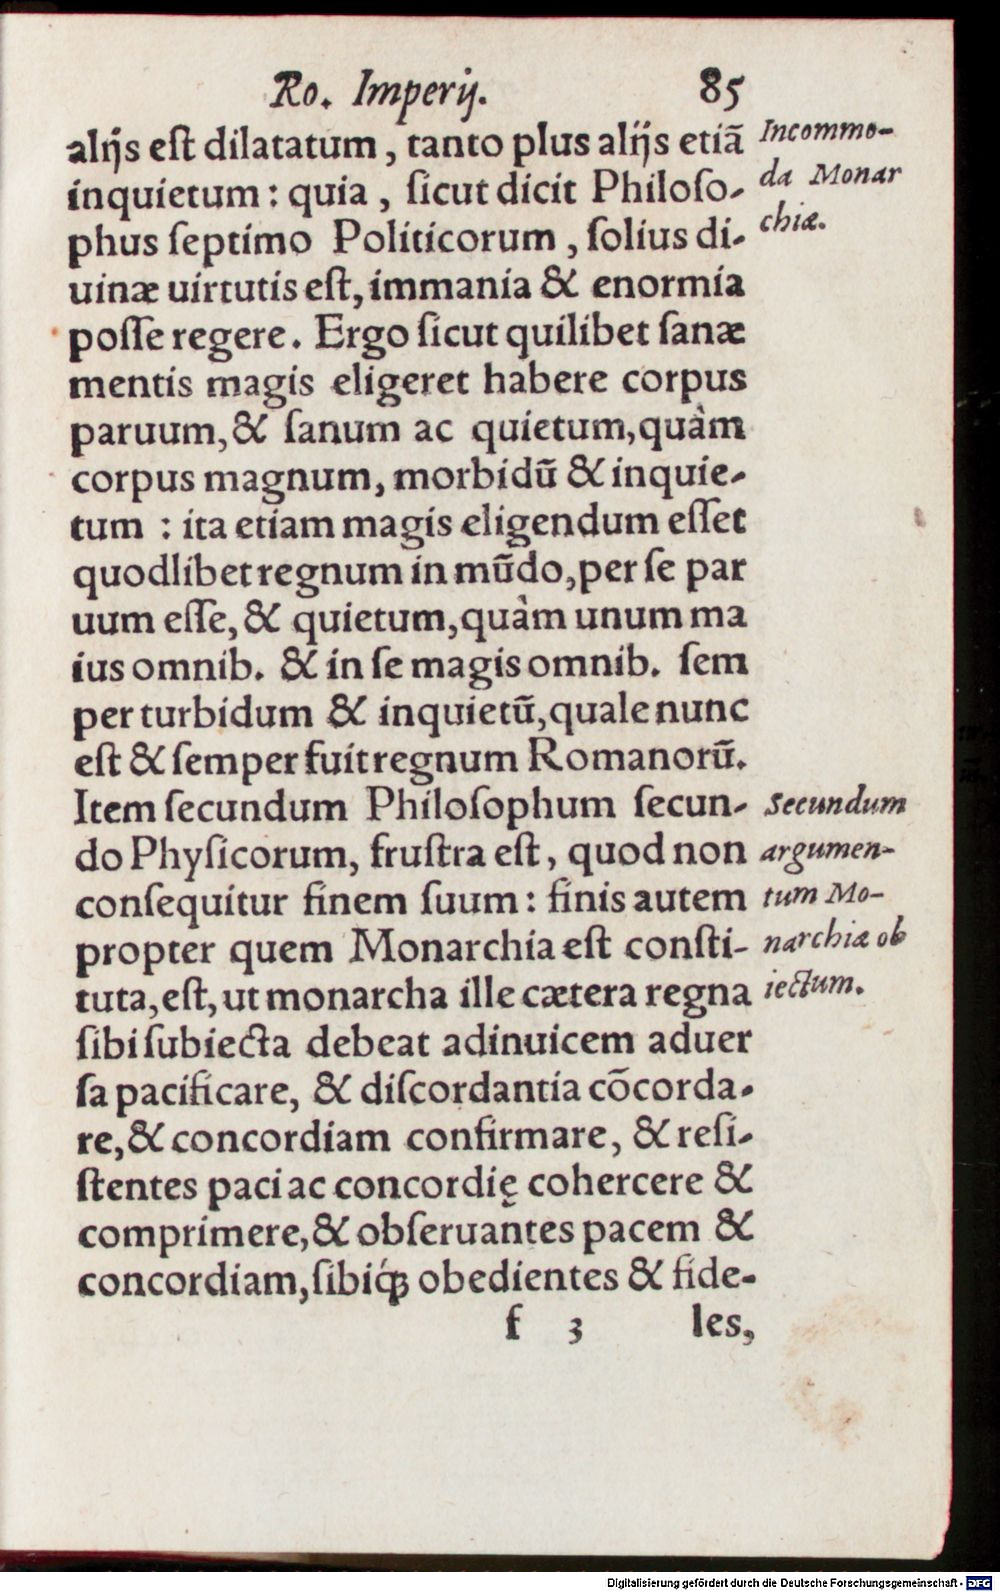 Ro. Imperij. 85
alijs eſt dilatatum, tanto plus alijs etiã
inquietum: quia, ſicut dicit Philoſo-
phus ſeptimo Politicorum, ſolius di-
uinæ uirtutis eſt, immania & enormia
poſſe regere. Ergo ſicut quilibet ſanæ
mentis magis eligeret habere corpus
paruum, & ſanum ac quietum, quàm
corpus magnum, morbidũ & inquie-
tum : ita etiam magis eligendum eſſet
quodlibet regnum in mũdo, per ſe par
uum eſſe, & quietum, quàm unum ma
ius omnib. & in ſe magis omnib. ſem
per turbidum & inquietũ, quale nunc
eſt & ſemper fuit regnum Romanorũ.
Item ſecundum Philoſophum ſecun-
do Phyſicorum, fruſtra eſt, quod non
conſequitur finem ſuum: finis autem
propter quem Monarchia eſt conſti-
tuta, eſt, ut monarcha ille cætera regna
ſibi ſubiecta debeat adinuicem aduer
ſa pacificare, & diſcordantia cõcorda-
re, & concordiam confirmare, & reſi-
ſtentes paci ac concordię cohercere &
comprimere, & obſeruantes pacem &
concordiam, ſibiq́ꝫ obedientes & fide-
f 3 les,
Incommo-
da Monar
chiæ.
Secundum
argumen-
tum Mo-
narchiæ ob
iectum.
Digitalisierung gefördert durch die Deutsche Forschungsgemeinschaft - DFG